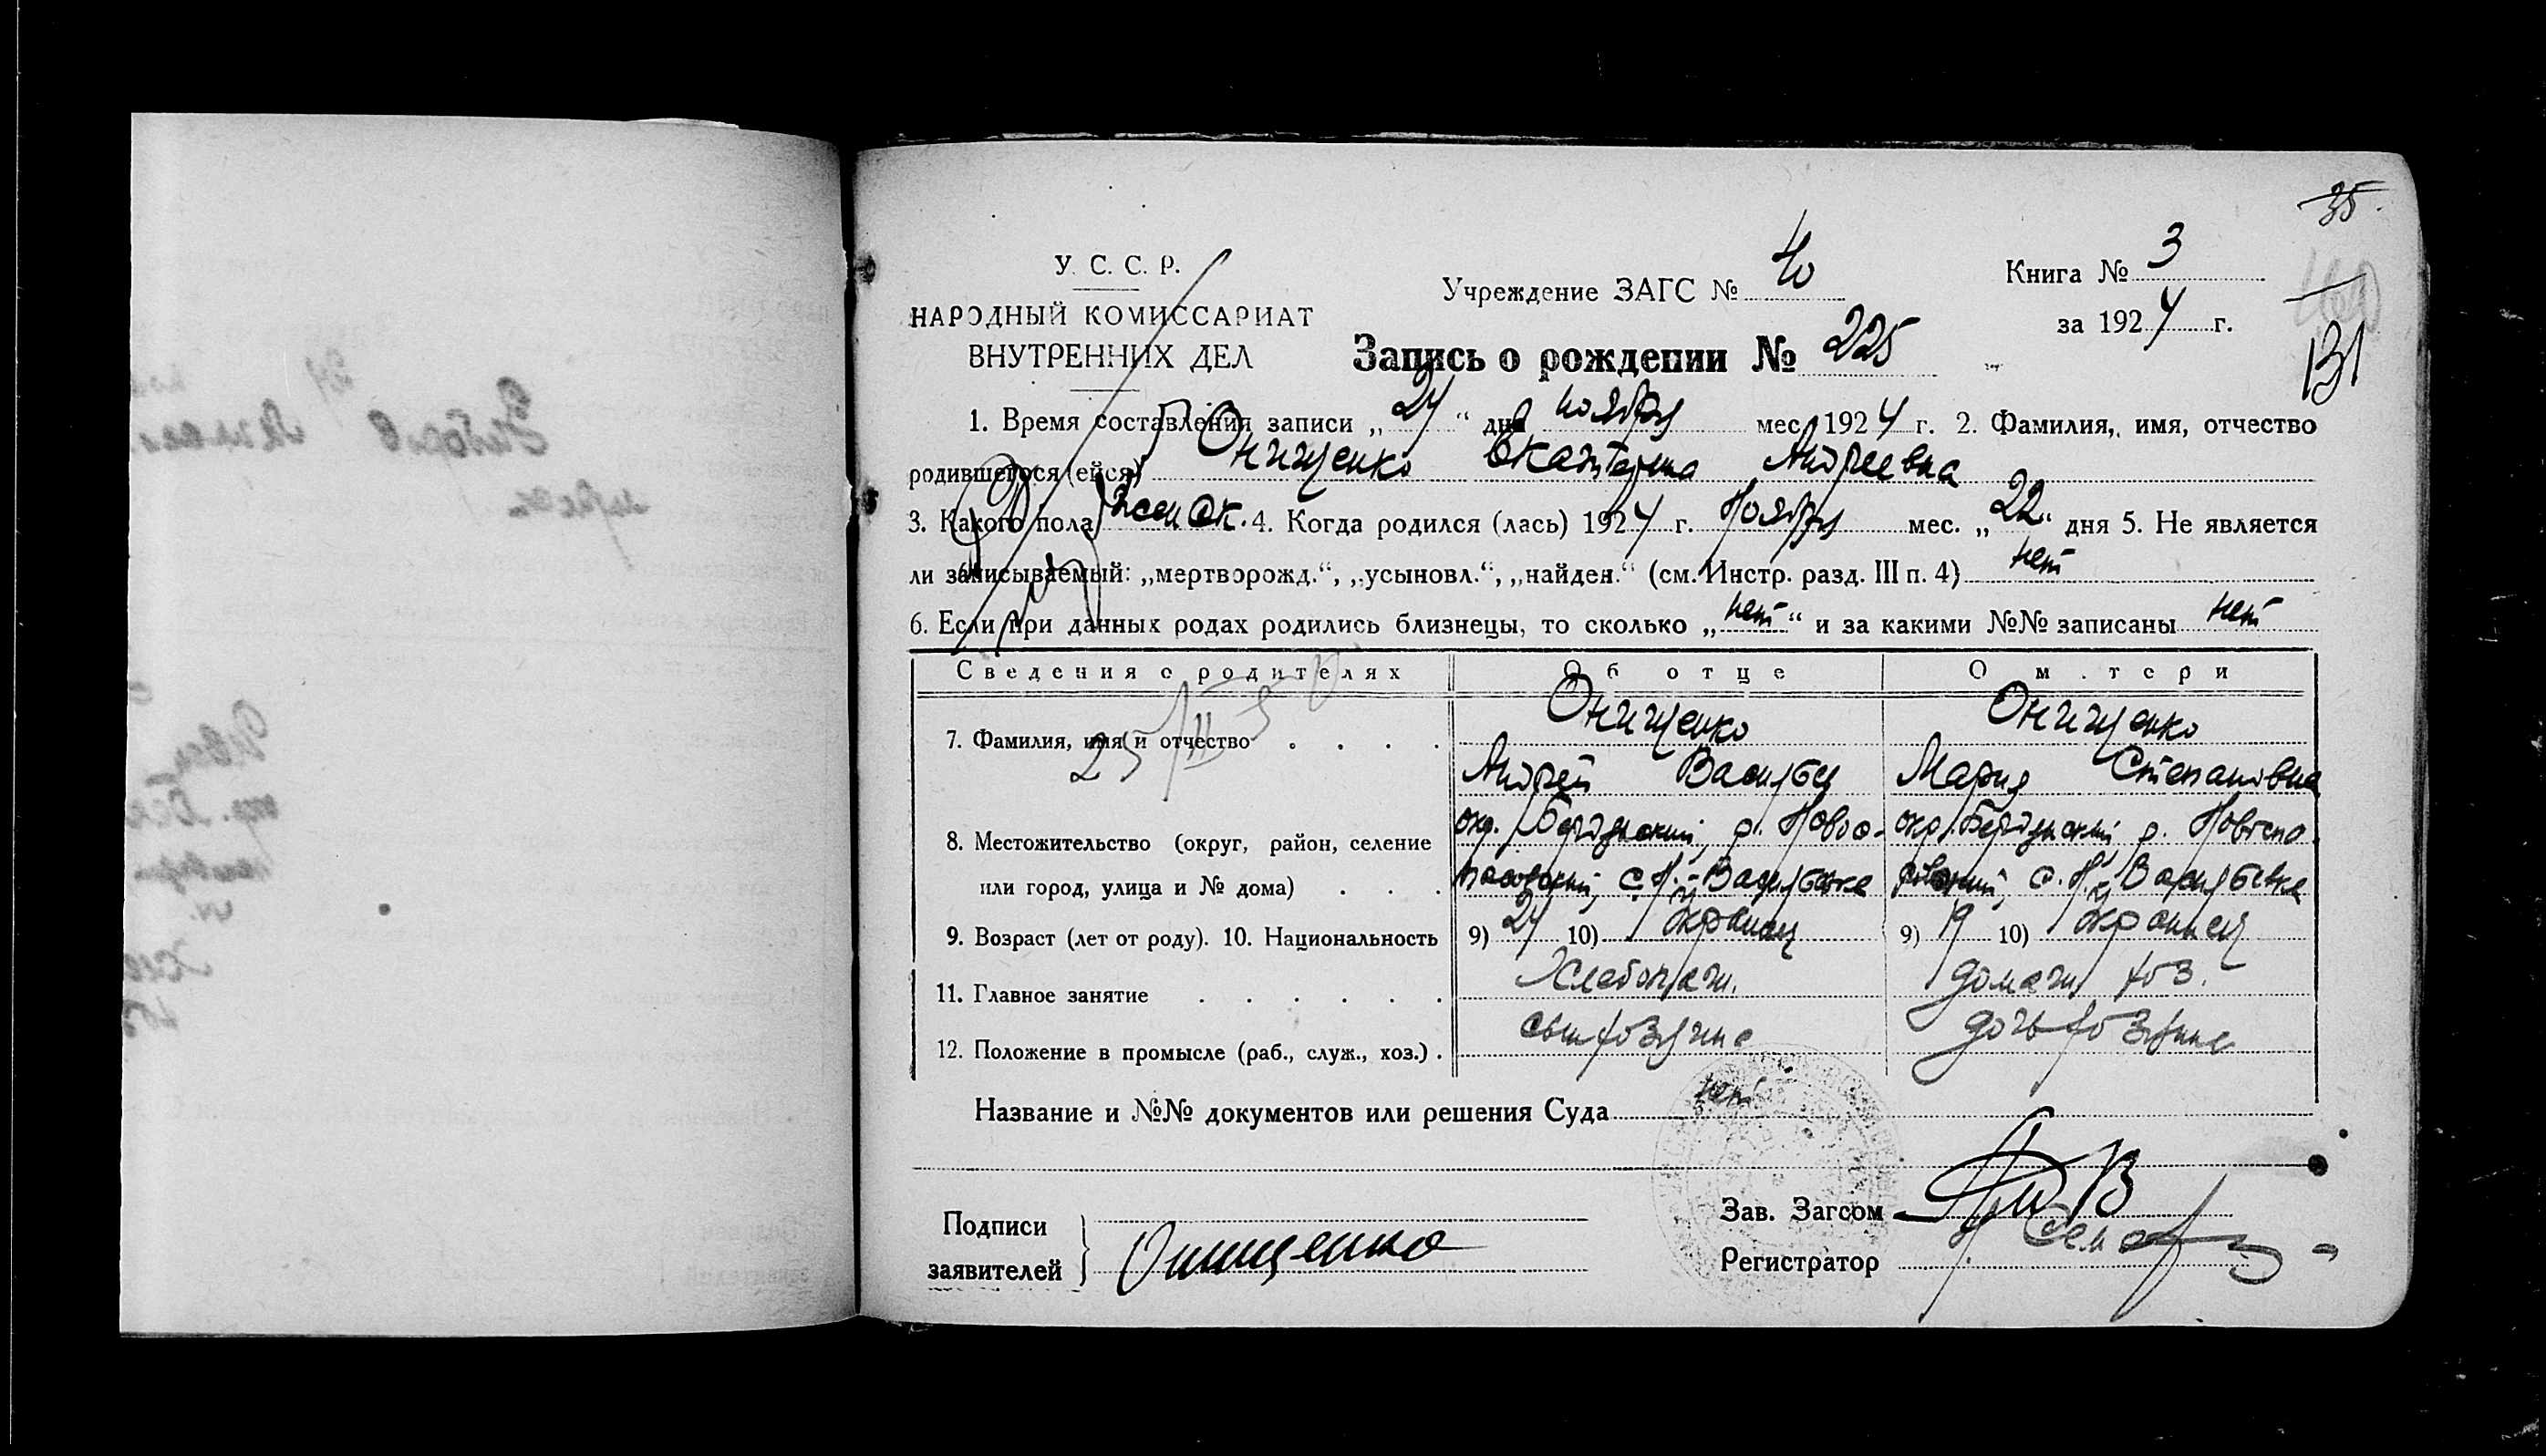 35.
У. С. С. Р.
НАРОДНЫЙ КОМИССАРИАТ
ВНУТРЕННИХ ДЕЛ
Учреждение ЗАГС № 40
Книга № 3
за 1924 г.
131
Запись о рождении № 225
1. Время составления записи „24“ дня ноября мес. 1924 г. 2. Фамилия, имя, отчество
родившегося (ейся) Онищенко Екатерина Андреевна
3. Какого пола женск. 4. Когда родился (лась) 1924 г. Ноября мес. „22“ дня 5. Не является
ли записываемый: „мертворожд.“, „усыновл.“, „найден.“ (см. Инстр. разд. III п. 4) нет
6. Если при данных родах родились близнецы, то сколько „нет“ и за какими №№ записаны нет
Сведения о родителях Об отце О м.тери
7. Фамилия, имя и отчество Онищенко Онищенко
25/III
Андрей Васильев Мария Степановна
8. Местожительство (округ, район, селение окр. Бердянский, р. Новос- окр. Бердянский р. Новоспа
или город, улица и № дома) пасовский, с. Н. Васильевка с. Н. Васильевка
9. Возраст (лет от роду). 10. Национальность 9) 24 10) Украинец 9) 19 10) Украинец
11. Главное занятие Хлебопаш. домашн. хоз.
12. Положение в промысле (раб., служ., хоз.) сын хозяина дочь хозяина
Название и №№ документов или решения Суда нет
Подписи
заявителей } Онищенко
Зав. Загсом
Регистратор